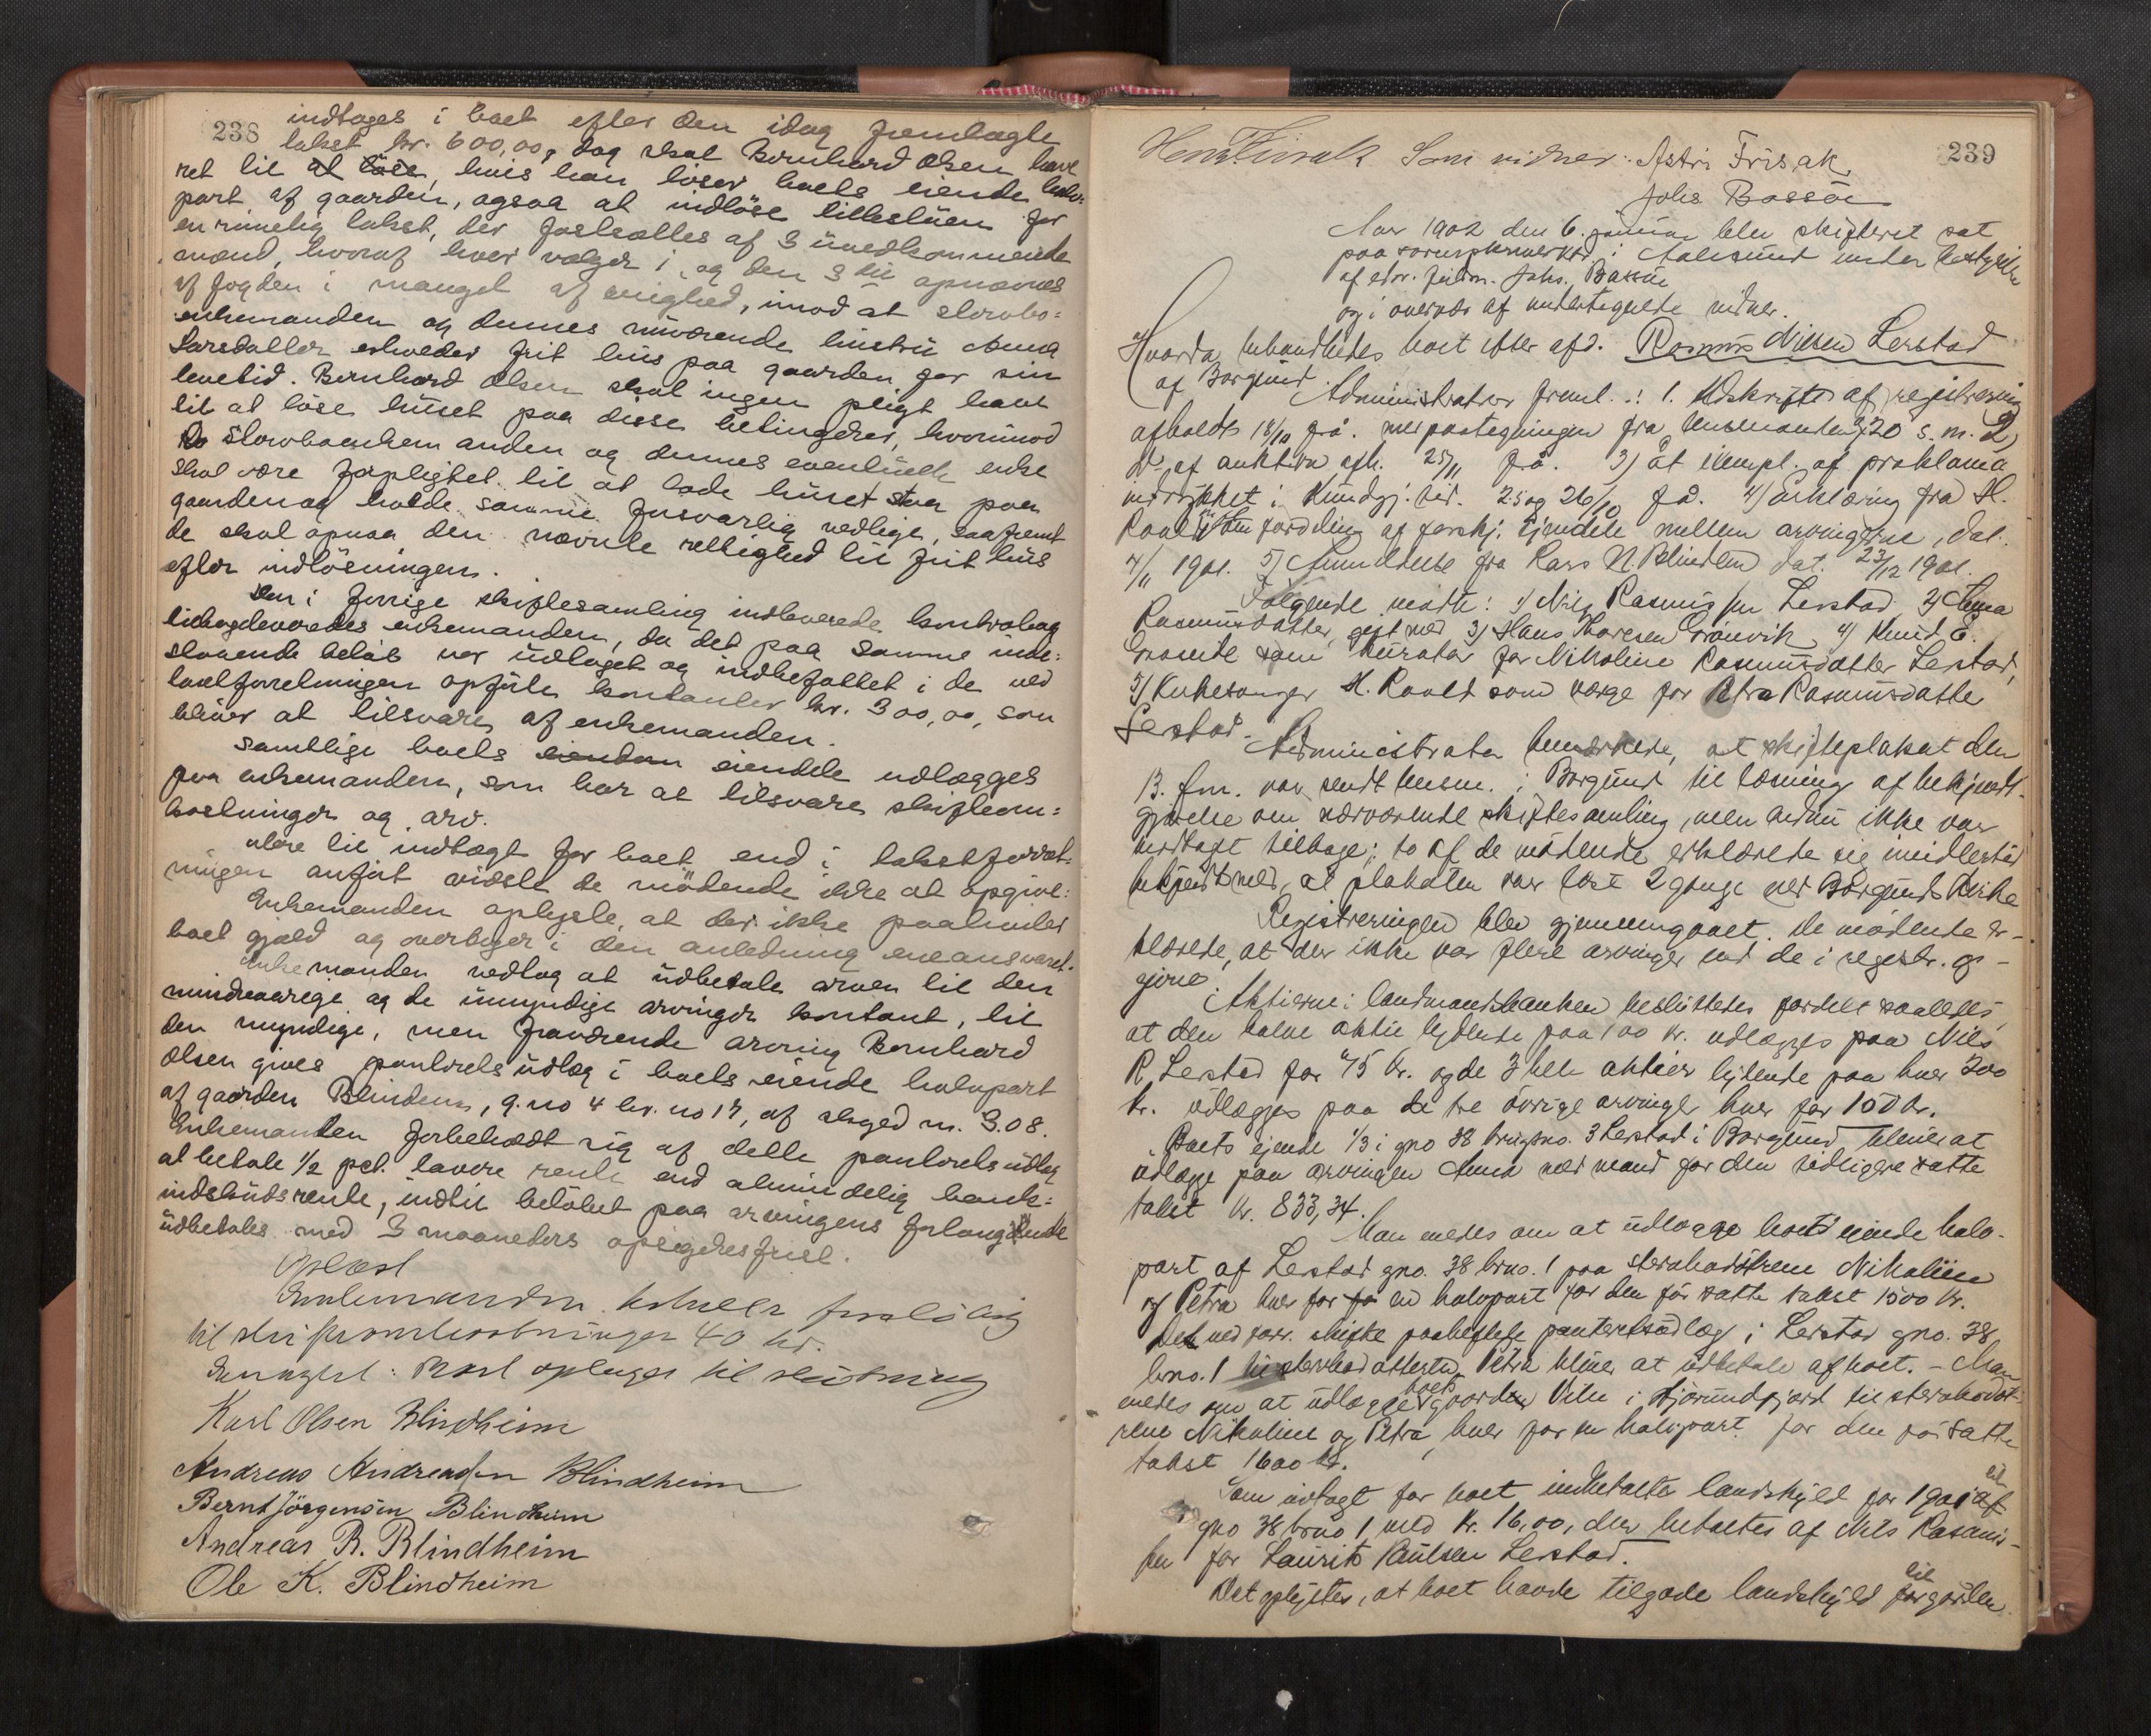 238
indtages i boet efter den idag fremlagte
takst kr. 600,00, dog skal Bernhard Olsen have
ret til at løse, hvis han løser boets eiende halv-
part af gaarden, ogsaa at indløse lillestuen for
en rimelig takst, der fastsættes af 3 uvedkommende
mænd, hvoraf hver vælger 1, og den 3die opnævnes
af fogden i mangel af enighed, imod at stervbo-
enkemanden og dennes nuværende hustru Anna
Larsdatter erholder frit hus paa gaarden for sin
levetid. Bernhard Olsen skal ingen pligt have
til at løse huset paa disse betingelser, hvorimod
stervboenkemanden og dennes eventuelle enke
skal være forpligtet til at lade huset staa paa
gaarden og holde samme forsvarlig vedlige, saafremt
de skal opnaa den nævnte rettighed til frit hus
efter indløsningen.
Den i forrige skiftesamling indleverede kontrabog
tilbageleveredes enkemanden, da det paa samme inde-
staaende beløb var udtaget og indbefattet i de ved
taxtforretningen opførte kontanter kr. 300,00, som
bliver at tilsvare af enkemanden.
Samtlige boets eiendele udlægges
paa enkemanden, som har at tilsvare skifteom-
kostninger og arv.
Mere til indtægt for boet end i takstforret-
ningen anført vidste de mødende ikke at opgive.
Enkemanden oplyste, at der ikke paahviler
boet gjæld og overtager i den anledning eneansvaret.
Enkemanden vedtog at udbetale arven til den
mindreaarige og de umyndige arvinger kontant, til
den myndige, men fraværende arving Bernhard
Olsen gives panteretsudlæg i boets eiende halvpart
af gaarden Blindem, g.no 4 br.no 17, af skyld m. 3.08.
Enkemanden forbeholdt sig af dette panteretsudlæg
at betale 1/2 pct. lavere rente end almindelig bank-
indskudsrente, indtil beløbet paa arvingens forlangende
udbetales med 3 maaneders opsigelsesfrist.
Oplæst
Enkemanden betaler foreløbig
til skifteomkostninger 40 kr.
Eragtet: Boet optages til slutning
Karl Olsen Blindheim
Andreas Andreassen Blindheim
Bernt Jörgensen Blindheim
Andreas B. Blindheim
Ole K. Blindheim
239
Som vidner: Astri Frisak
Johs Bassøe
Aar 1902 den 6. januar blev skifteret sat
paa sorenskriverktr. i Aalesund under bestyrelse
af edsv. fuldm. Johs. Bassøe
og i overvær af undertegnede vidner.
Hvorda behandledes boet efter afd. Rasmus Nilsen Lerstad
af Borgund.
Administrator freml.: 1. Udskrift af registrering
afholdt 18/10 f.å. med paategninger fra lensmanden 20 s. m. 2)
do. af auktion afh. 25/11 f.å. 3) Et exempl. af proklama
indrykket i Kundgj.tid. 25 og 26/10 f.å. 4) Erklæring fra H.
Roald om fordeling af forskj. ejendele mellem arvingerne, dat.
4/11 1901. 5) Anmeldelse fra Lars N. Blindem dat. 23/12 1901.
Følgende mødte: 1) Nils Rasmussen Lerstad 2) Anna
Rasmusdatter, gift med 3) Hans Thoresen Grönvik, 4) Knud E.
som kurator for Nikoline Rasmusdatter Lerstad,
5) Kirkesanger H. Roald som værge for Petra Rasmusdatter
Lerstad.
Administrator bemærkede, at skifteplakat den
13. f.m. var sendt lensm. i Borgund til læsning af bekjendt-
gjørelse om nærværende skiftesamling, men endnu ikke var
modtaget tilbage; to af de mødende erklærede sig imidlertid
bekjendt med, at plakaten var læst 2 gange ved Borgunds Kirke
Registreringen blev gjennemgaaet. De mødende er-
klærede, at der ikke var flere arvinger end de i registr. op-
givne.
Aktierne i landmandsbanken besluttedes fordelt saaledes,
at den halve aktie lydende paa 100 kr. udlægges paa Nils
R. Lerstad for 75 kr. og de 3 hele aktier lydende paa hver 200
kr. udlægges paa de tre övrige arvinger hver for 150 kr.
Boets ejende 1/3 i gno 38 brugsno. 3 Lerstad i Borgund bliver at
udlægge paa arvingen Anna med mand for den tidligere satte
takst kr. 833,34.
Man enedes om at udlægge boets ejende halv-
part af Lerstad gno. 38 brno. 1 paa stervbodötrene Nikoline
og Petra hver for en halvpart for den før satte takst 1500 kr.
Det ved forr. skifte paaheftede panteretsudlæg i Lerstad gno. 38
brno. 1 til stervbodatteren Petra bliver at udbetale af boet. - Man
enedes om at udlægge boets gaarden Viken i Hjörundfjord til stervbodøt-
rene Nikoline og Petra, hver for en halvpart for den før satte
takst 1600 kr.
Som indtægt for boet indbetaltes landskyld for 1901 af til
gno 38 brno 1 med kr. 16,00, der betaltes af Nils Rasmus-
sen for Laurits Paulsen Lerstad.
Det oplystes, at boet havde tilgode landskyld for til gården